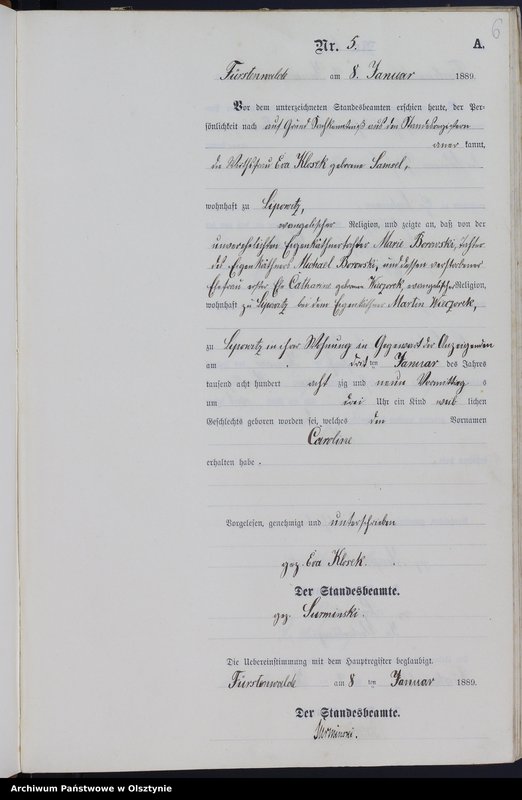 6
Nr. 5. A.
Fürstenwalde am 8. Januar 1889.
Vor dem unterzeichneten Standesbeamten erschien heute, der Per-
sönlichkeit nach auf Grund Sachkenntniß aus den Standesregistern
aner kannt,
die Wirthsfrau Eva Klosek geborene Samsel,
wohnhaft zu Lipowitz,
evangelischer Religion, und zeigte an, daß von der
unverehelichten Eigenkäthnertochter Marie Borowski, Tochter
des Eigenkäthners Michael Borowski, und dessen verstorbener
Ehefrau erster Ehe Catharine geborene Wieczorek, evangelisch. Religion,
wohnhaft zu Lipowitz bei dem Eigenkäthner Martin Wieczorek,
zu Lipowitz in ihrer Wohnung in Gegenwart der Anzeigenden
am dritten Januar des Jahres
tausend acht hundert acht zig und neun Vormittag s
um drei Uhr ein Kind weib lichen
Geschlechts geboren worden sei, welches den Vornamen
Caroline
erhalten habe.
Vorgelesen, genehmigt und unterschrieben
gez. Eva Klosek.
Der Standesbeamte.
gez. Surminski.
Die Uebereinstimmung mit dem Hauptregister beglaubigt.
Fürstenwalde am 8 ten Januar 1889.
Der Standesbeamte.
Surminski.
Archiwum Państwowe w Olsztynie